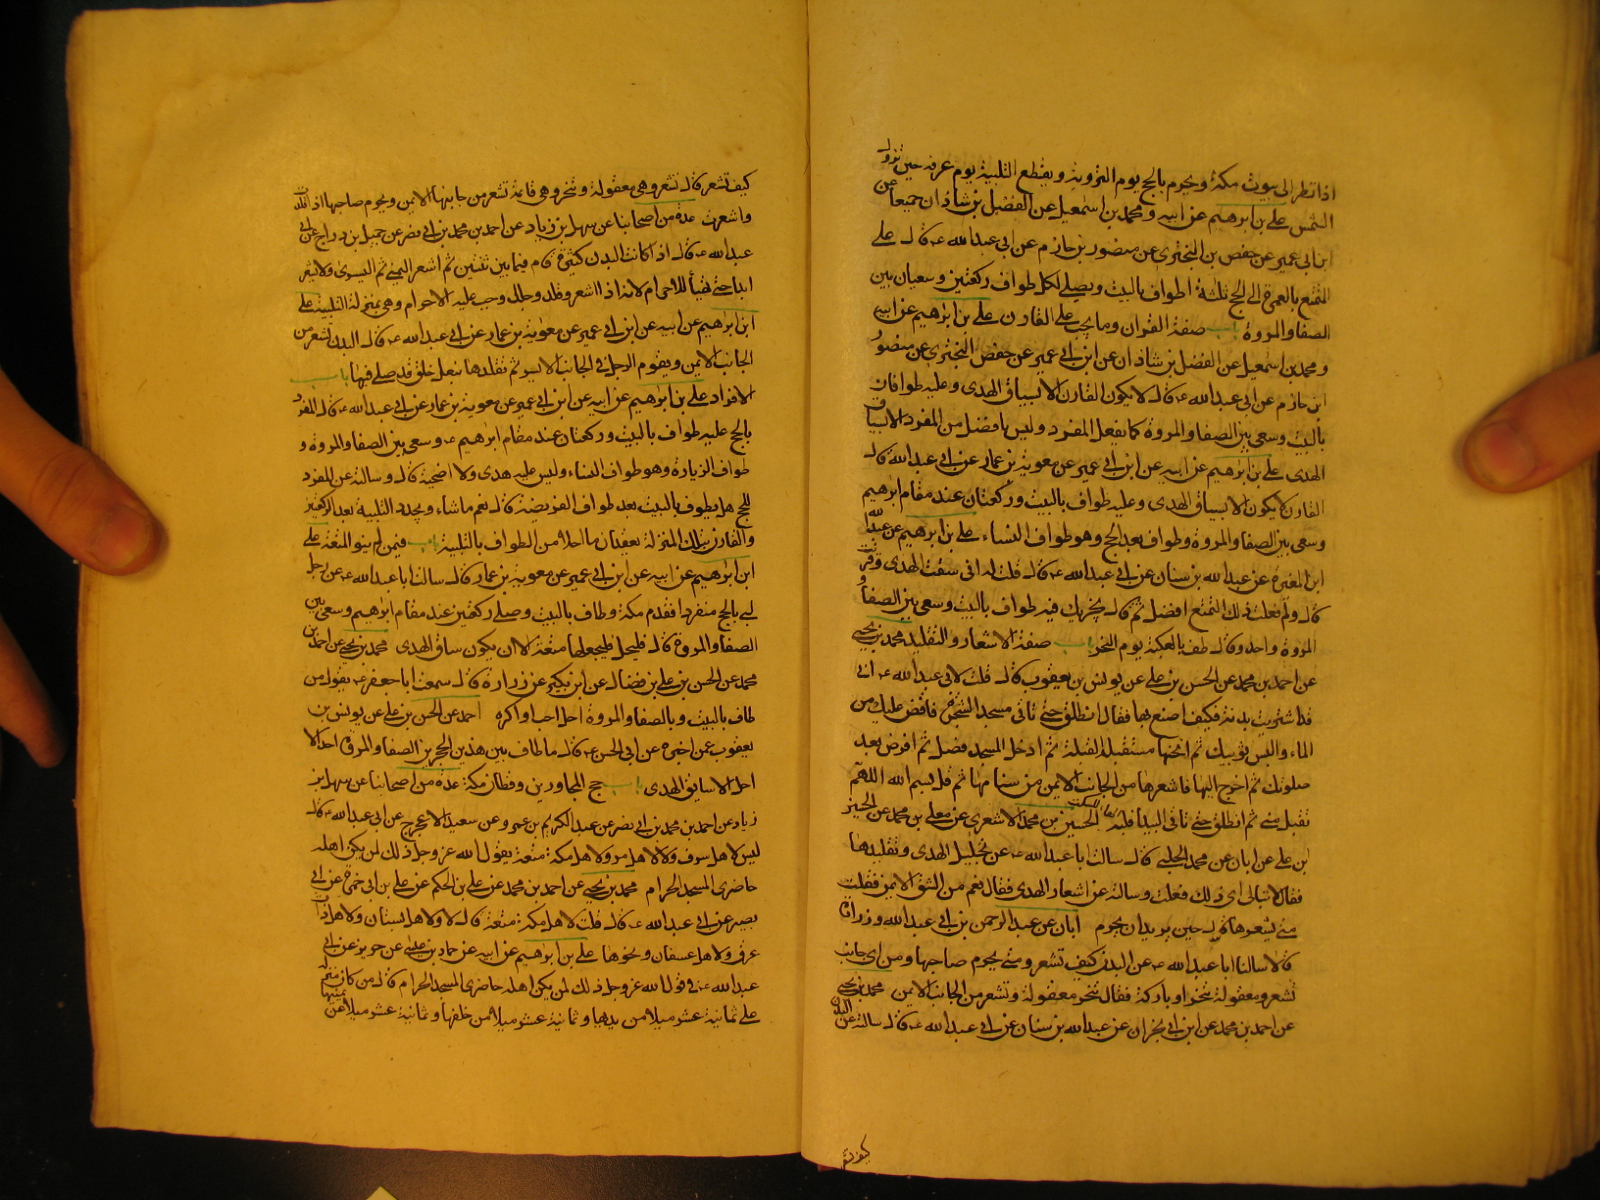 اذا نظر الى بيوت مكة ويحرم بالحج يوم التروية ويقطع التلبية يوم عرفة حين تزول
الشمس علي بن ابرهيم عن ابيه ومحمد بن اسمعيل عن الفضل بن شاذان جميعا عن
ابن ابي عمير عن حفص بن البختري عن منصور بن حازم عن ابي عبد الله ع قال على
المتمتع بالعمرة الى الحج ثلثة اطواف بالبيت ويصلي لكل طواف ركعتين وسعيان بين
الصفا والمروة باب صفة القران وما يجب على القارن علي بن ابرهيم عن ابيه
ومحمد بن اسمعيل عن الفضل بن شاذان عن ابن ابي عمير عن حفص البختري عن منصور
ابن حازم عن ابي عبد الله ع قال لا يكون القارن الا بسياق الهدى وعليه طوافان
بالبيت وسعي بين الصفا والمروة كما يفعل المفرد وليس بافضل من المفرد الا بسياق
الهدى علي بن ابرهيم عن ابيه عن ابن ابي عمير عن معوية بن عمار عن ابي عبد الله قال
القارن لا يكون الا بسياق الهدى وعليه طواف بالبيت وركعتان عند مقام ابرهيم
وسعي بين الصفا والمروة وطواف بعد الحج وهو طواف النساء علي بن ابرهيم عن عبد الله
ابن المغيرة عن عبد الله بن سنان عن ابي عبد الله ع قال قلت له اني سقت الهدى وقرنت
قال ولم فعلت ذلك التمتع افضل ثم قال يجزيك فيه طواف بالبيت وسعي بين الصفا و
المروة واحد وقال طف بالكعبة يوم النحر باب صفة الاشعار والتقليد محمد بن يحيى
عن احمد بن محمد عن الحسن بن علي عن يونس بن يعقوب قال قلت لابي عبد الله ع اني
قد اشتريت بدنة فكيف اصنع بها فقال انطلق حتى تاتي مسجد الشجرة فافض عليك من
الماء والبس ثوبيك ثم انخها مستقبلة القبلة ثم ادخل المسجد فصل ثم افرض بعد
صلوتك ثم اخرج اليها فاشعرها من الجانب الايمن من سنامها ثم قل بسم الله اللهم
تقبل مني ثم انطلق حتى تاتي البيداء فلبه الحسين بن محمد الاشعري عن معلى بن محمد عن الحسن
بن علي عن ابان عن محمد الحلبي قال سالت ابا عبد الله ع عن تجليل الهدى وتقليدها
فقال لا تبالي اى ذلك فعلت وسالته عن اشعار الهدى فقال نعم من الشق الايمن فقلت
متى نشعرها قال حين يريد ان يحرم ابان عن عبد الرحمن بن ابي عبد الله وزرارة
قالا سالنا ابا عبد الله ع عن البدن كيف تشعر ومتى يحرم صاحبها ومن اى جانب
تشعر ومعقولة تنحر او باركة فقال تنحر معقولة وتشعر من الجانب الايمن محمد بن يحيى
عن احمد بن محمد عن ابن ابي نجران عن عبد الله بن سنان عن ابي عبد الله ع قال سالته عن البدن
كيف تشعر
كيف تشعر قال تشعر وهي معقولة وتنحر وهي قائمة تشعر من جانبها الايمن ويحرم صاحبها اذا قلدت
واشعرت عدة من اصحابنا عن سهل بن زياد عن احمد بن محمد بن ابي نصر عن جميل بن دراج عن ابي
عبد الله ع قال اذا كانت البدن كثيرة قام فيما بين ثنتين ثم اشعر اليمنى ثم اليسرى ولا يشعر
ابدا حتى يتهيأ للاحرام لانه اذا اشعر وقلد وجلل وجب عليه الاحرام وهي بمنزلة التلبية علي
ابن ابرهيم عن ابيه عن ابن ابي عمير عن معوية بن عمار عن ابي عبد الله ع قال البدن تشعر من
الجانب الايمن ويقوم الرجل في الجانب الايسر ثم تقلدها بنعل خلق قد صلي فيها باب
الافراد علي بن ابرهيم عن ابيه عن ابن ابي عمير عن معوية بن عمار عن ابي عبد الله ع قال المفرد
بالحج عليه طواف بالبيت وركعتان عند مقام ابرهيم ع وسعي بين الصفا والمروة و
طواف الزيارة وهو طواف النساء وليس عليه هدى ولا اضحية قال وسالته عن المفرد
للحج هل يطوف بالبيت بعد طواف الفريضة قال نعم ما شاء ويجدد التلبية بعد الركعتين
والقارن بتلك المنزلة يعقدان ما احلا من الطواف بالتلبية باب فيمن لم ينو المتعة علي
ابن ابرهيم عن ابيه عن ابن ابي عمير عن معوية بن عمار قال سالت ابا عبد الله ع عن رجل
لبى بالحج منفردا فقدم مكة وطاف بالبيت وصلى ركعتين عند مقام ابرهيم وسعى بين
الصفا والمروة قال فليحل وليجعلها متعة الا ان يكون ساق الهدى محمد بن يحيى عن احمد بن
محمد عن الحسن بن علي بن فضال عن ابن بكير عن زرارة قال سمعت ابا جعفر ع يقول من
طاف بالبيت وبالصفا والمروة احل احب او كره احمد عن الحسن بن علي عن يونس بن
يعقوب عمن اخبره عن ابي الحسن ع قال ما طاف بين هذين الحجرين الصفا والمروة احد الا
احل الا سايق الهدى باب حج المجاورين وقطان مكة عدة من اصحابنا عن سهل بن
زياد عن احمد بن محمد بن ابي نصر عن عبد الكريم بن عمرو عن سعيد الاعرج عن ابي عبد الله ع قال
ليس لاهل سرف ولا لاهل مر ولا لاهل مكة متعة يقول الله عز وجل ذلك لمن لم يكن اهله
حاضرى المسجد الحرام محمد بن يحيى عن احمد بن محمد عن علي بن الحكم عن علي بن ابي حمزة عن ابي
بصير عن ابي عبد الله ع قال قلت لاهل مكة متعة قال لا ولا لاهل بستان ولا لاهل ذات
عرق ولا لاهل عسفان ونحوها علي بن ابرهيم عن ابيه عن حماد بن عيسى عن حريز عن ابي
عبد الله ع في قول الله عز وجل ذلك لمن لم يكن اهله حاضرى المسجد الحرام قال من كان منزله
على ثمانية عشر ميلا من بين يديها وثمانية عشر ميلا من خلفها وثمانية عشر ميلا عن يمينها